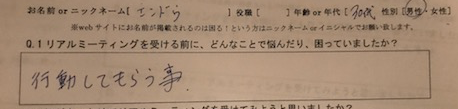 お名前 or ニックネーム[ エンドウ ] 役職[ ] 年齢 or 年代[ 30代 ] 性別[男性・女性]
※webサイトにお名前が掲載されるのは困る！という方はニックネーム or イニシャルでお願い致します。
Q.1 リアルミーティングを受ける前に、どんなことで悩んだり、困っていましたか？
行動してもらう事.
ミーティングを受けてみようと思いましたか？